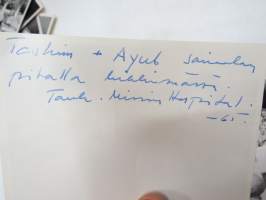 Taskim + Ayub sairaalan
pihalla leikkimässä.
Tank. Mission Hospital.
-65.